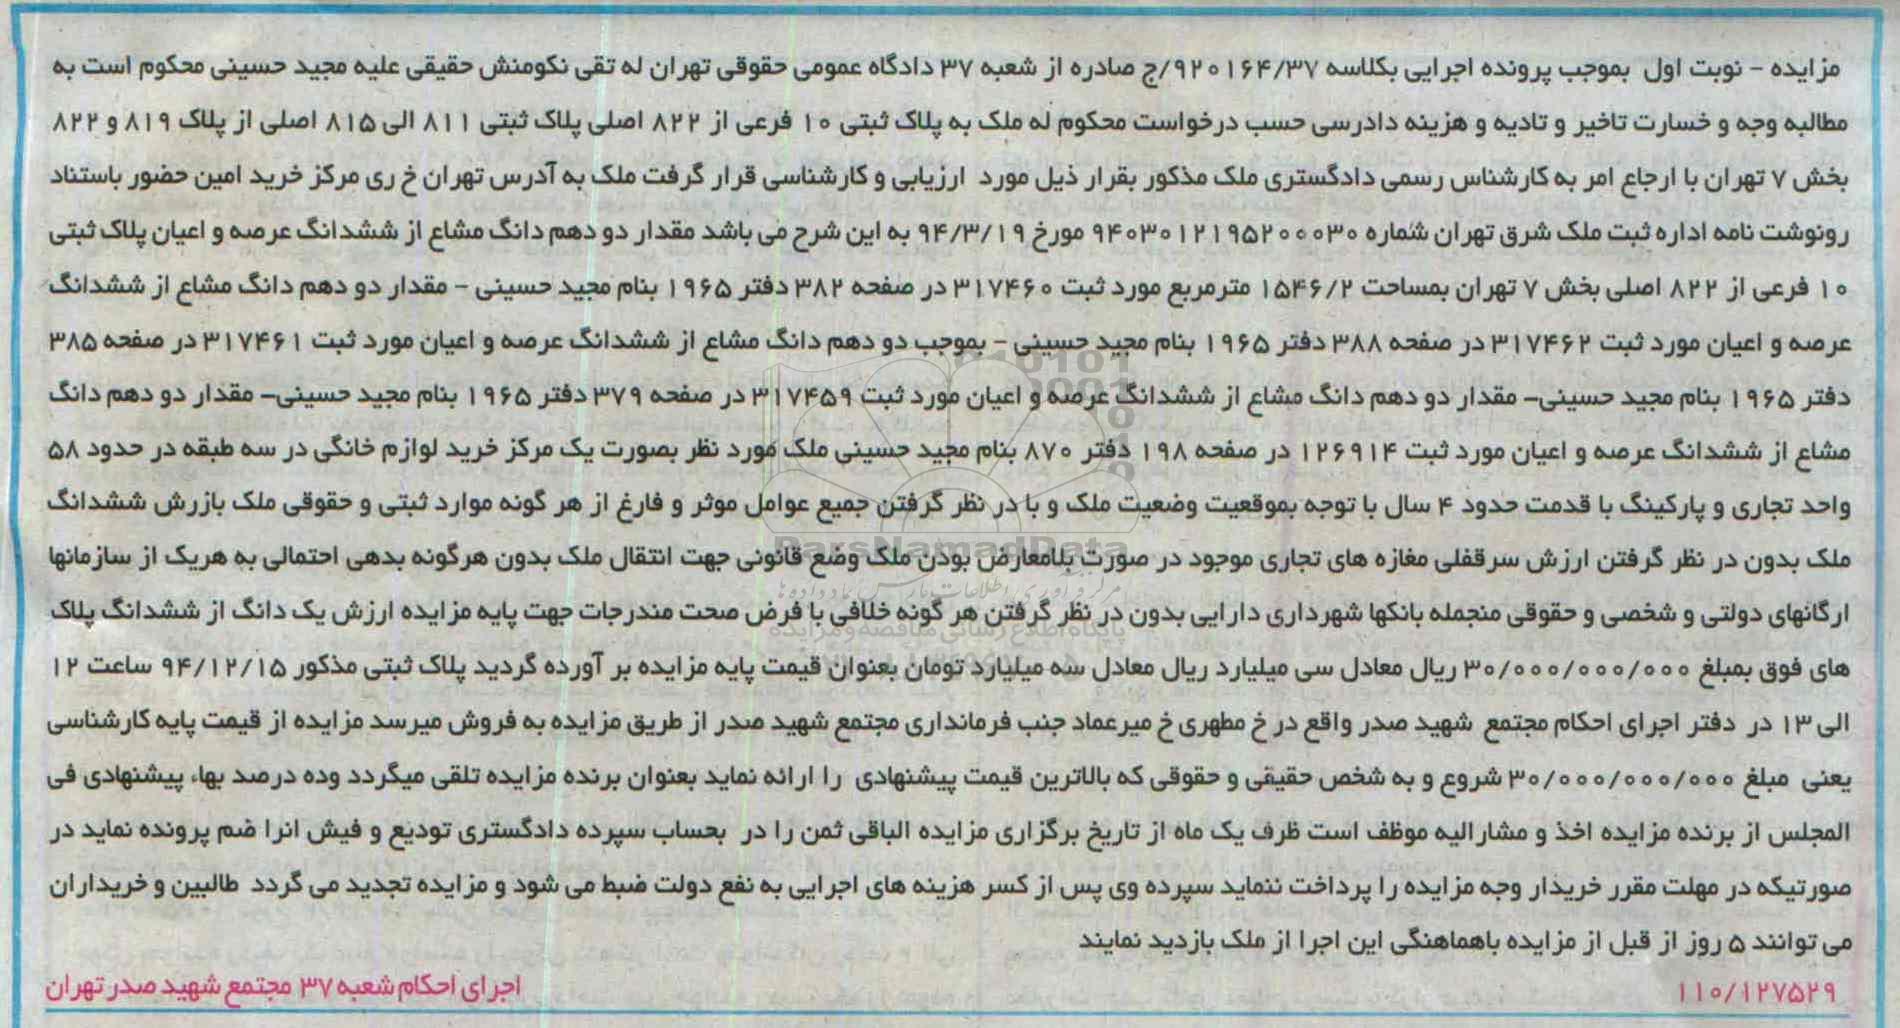 مزایده - نوبت اول بموجب پرونده اجرایی بکلاسه ۹۲۰۱۶۴/۳۷/ج صادره از شعبه ۳۷ دادگاه عمومی حقوقی تهران له تقی نکومنش حقیقی علیه مجید حسینی محکوم است به
مطالبه وجه و خسارت تاخیر و تادیه و هزینه دادرسی حسب درخواست محکوم له ملک به پلاک ثبتی ۱۰ فرعی از ۸۲۲ اصلی پلاک ثبتی ۸۱۱ الی ۸۱۵ اصلی از پلاک ۸۱۹ و ۸۲۲
بخش ۷ تهران با ارجاع امر به کارشناس رسمی دادگستری ملک مذکور بقرار ذیل مورد ارزیابی و کارشناسی قرار گرفت ملک به آدرس تهران خ ری مرکز خرید امین حضور باستناد
رونوشت نامه اداره ثبت ملک شرق تهران شماره ۹۴۰۳۰۱۲۱۹۵۲۰۰۰۳۰ مورخ ۹۴/۳/۱۹ به این شرح می باشد مقدار دو دهم دانگ مشاع از ششدانگ عرصه و اعیان پلاک ثبتی
۱۰ فرعی از ۸۲۲ اصلی بخش ۷ تهران بمساحت ۱۵۴۶/۲ مترمربع مورد ثبت ۳۱۷۴۶۰ در صفحه ۳۸۲ دفتر ۱۹۶۵ بنام مجید حسینی - مقدار دو دهم دانگ مشاع از ششدانگ
عرصه و اعیان مورد ثبت ۳۱۷۴۶۲ در صفحه ۳۸۸ دفتر ۱۹۶۵ بنام مجید حسینی - بموجب دو دهم دانگ مشاع از ششدانگ عرصه و اعیان مورد ثبت ۳۱۷۴۶۱ در صفحه ۳۸۵
دفتر ۱۹۶۵ بنام مجید حسینی- مقدار دو دهم دانگ مشاع از ششدانگ عرصه و اعیان مورد ثبت ۳۱۷۴۵۹ در صفحه ۳۷۹ دفتر ۱۹۶۵ بنام مجید حسینی- مقدار دو دهم دانگ
مشاع از ششدانگ عرصه و اعیان مورد ثبت ۱۲۶۹۱۴ در صفحه ۱۹۸ دفتر ۸۷۰ بنام مجید حسینی ملک مورد نظر بصورت یک مرکز خرید لوازم خانگی در سه طبقه در حدود ۵۸
واحد تجاری و پارکینگ با قدمت حدود ۴ سال با توجه بموقعیت وضعیت ملک و با در نظر گرفتن جمیع عوامل موثر و فارغ از هر گونه موارد ثبتی و حقوقی ملک بازرش ششدانگ
ملک بدون در نظر گرفتن ارزش سرقفلی مغازه های تجاری موجود در صورت بلامعارض بودن ملک وضع قانونی جهت انتقال ملک بدون هرگونه بدهی احتمالی به هریک از سازمانها
ارگانهای دولتی و شخصی و حقوقی منجمله بانکها شهرداری دارایی بدون در نظر گرفتن هر گونه خلافی با فرض صحت مندرجات جهت پایه مزایده ارزش یک دانگ از ششدانگ پلاک
های فوق بمبلغ ۳۰/۰۰۰/۰۰۰/۰۰۰ ریال معادل سی میلیارد ریال معادل سه میلیارد تومان بعنوان قیمت پایه مزایده بر آورده گردید پلاک ثبتی مذکور ۹۴/۱۲/۱۵ ساعت ۱۲
الی ۱۳ در دفتر اجرای احکام مجتمع شهید صدر واقع در خ مطهری خ میرعماد جنب فرمانداری مجتمع شهید صدر از طریق مزایده به فروش میرسد مزایده از قیمت پایه کارشناسی
یعنی مبلغ ۳۰/۰۰۰/۰۰۰/۰۰۰ شروع و به شخص حقیقی و حقوقی که بالاترین قیمت پیشنهادی را ارائه نماید بعنوان برنده مزایده تلقی میگردد وده درصد بهاء پیشنهادی فی
المجلس از برنده مزایده اخذ و مشارالیه موظف است ظرف یک ماه از تاریخ برگزاری مزایده الباقی ثمن را در بحساب سپرده دادگستری تودیع و فیش انرا ضم پرونده نماید در
صورتیکه در مهلت مقرر خریدار وجه مزایده را پرداخت ننماید سپرده وی پس از کسر هزینه های اجرایی به نفع دولت ضبط می شود و مزایده تجدید می گردد طالبین و خریداران
می توانند ۵ روز از قبل از مزایده باهماهنگی این اجرا از ملک بازدید نمایند
۱۱۰/۱۲۷۵۲۹ اجرای احکام شعبه ۳۷ مجتمع شهید صدر تهران
ParsNamadData
پایگاه اطلاع رسانی مناقصه و مزایده